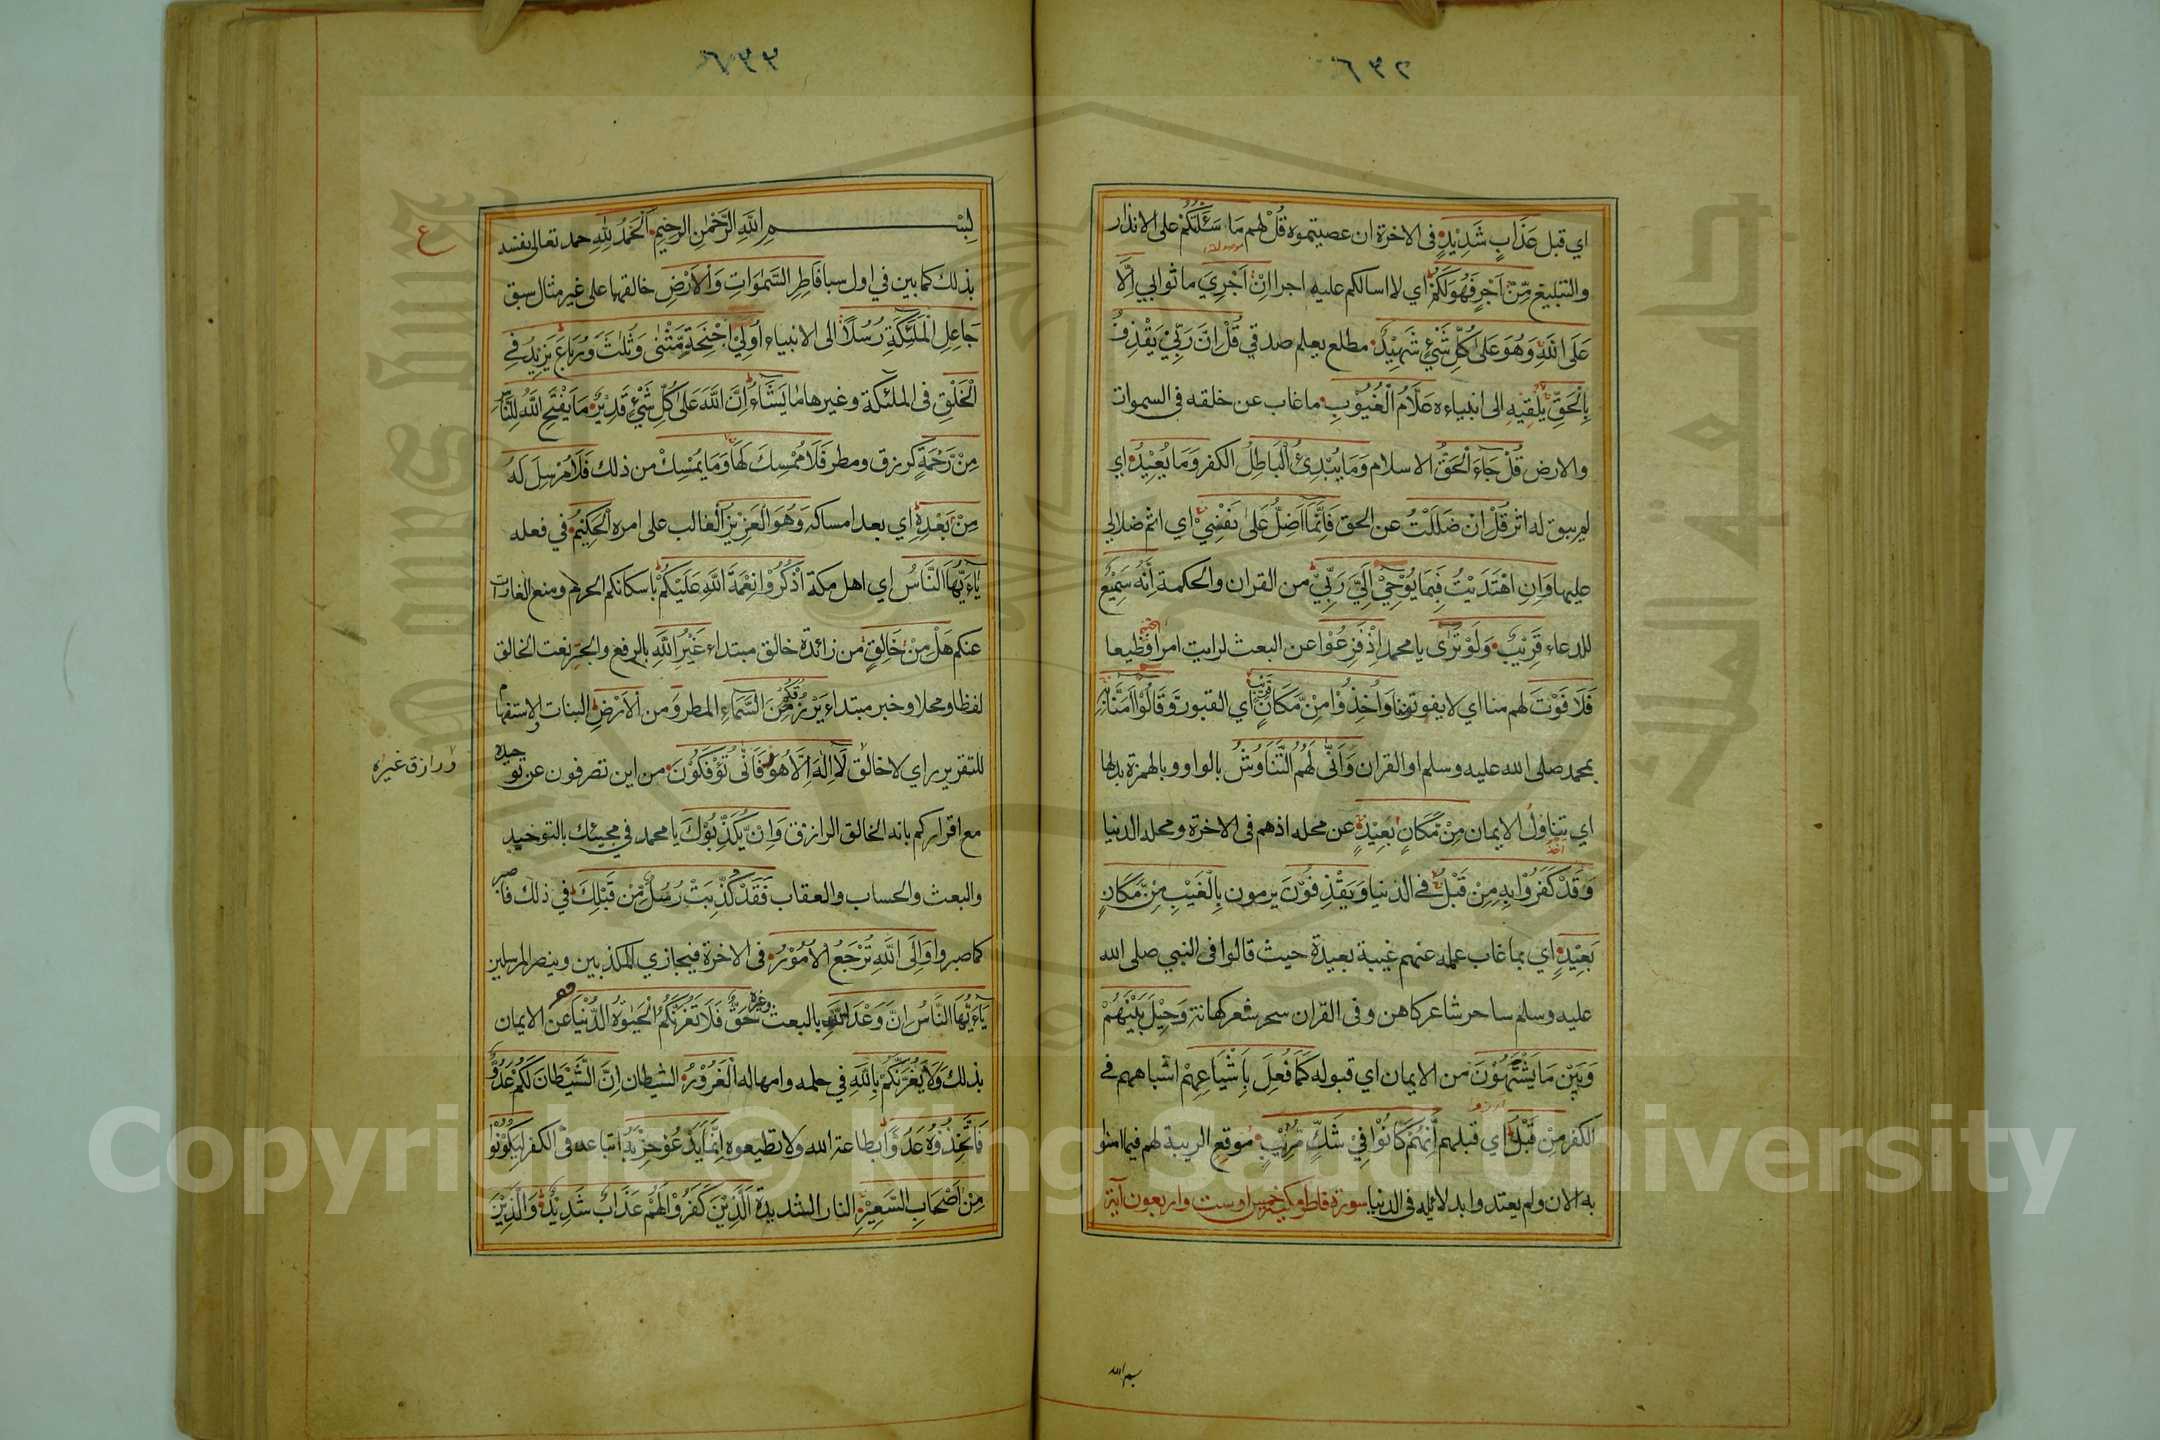 ٦٣٢
اي قبل عَذَابٍ شَدِيْدٍ في الاخرة ان عصيتموه قُلْ لهم مَا سَئَلْتُكُمْ على الانذار
والتبليغ مِّنْ اَجْرٍ فَهُوَ لَكُمْ اي لا اسالكم عليه اجرا اِنْ اَجْرِيَ ما ثوابي اِلَّا
عَلَى اللّٰهِ وَهُوَ عَلٰى كُلِّ شَيْءٍ شَهِيْدٌ مطلع يعلم صدقي قُلْ اِنَّ رَبِّيْ يَقْذِفُ
بِالْحَقِّ يلقيه الى انبيائه عَلَّامُ الْغُيُوْبِ ما غاب عن خلقه في السموات
والارض قُلْ جَاءَ الْحَقُّ الاسلام وَمَا يُبْدِئُ الْبَاطِلُ الكفر وَمَا يُعِيْدُ اي
لم يبق له اثر قُلْ اِنْ ضَلَلْتُ عن الحق فَاِنَّمَا اَضِلُّ عَلٰى نَفْسِيْ اي اثم ضلالي
عليها وَاِنِ اهْتَدَيْتُ فَبِمَا يُوْحِيْ اِلَيَّ رَبِّيْ من القران والحكمة اِنَّهُ سَمِيْعٌ
للدعاء قَرِيْبٌ وَلَوْ تَرٰى يا محمد اِذْ فَزِعُوْا عن البعث لرايت امرا فظيعا
فَلَا فَوْتَ لهم منا اي لا يفوتوننا وَاُخِذُوْا مِنْ مَّكَانٍ قَرِيْبٍ اي القبور وَّقَالُوْا اٰمَنَّا بِهِ
بمحمد صلى الله عليه وسلم او القران وَاَنّٰى لَهُمُ التَّنَاوُشُ بالواو وبالهمزة بدلها
اي تناول الايمان مِنْ مَّكَانٍ بَعِيْدٍ عن محله اذ هم في الاخرة ومحله الدنيا
وَقَدْ كَفَرُوْا بِهِ مِنْ قَبْلُ في الدنيا وَيَقْذِفُوْنَ يرمون بِالْغَيْبِ مِنْ مَّكَانٍ
بَعِيْدٍ اي بما غاب علمه عنهم غيبة بعيدة حيث قالوا في النبي صلى الله
عليه وسلم ساحر شاعر كاهن وفي القران سحر شعر كهانة وَحِيْلَ بَيْنَهُمْ
وَبَيْنَ مَا يَشْتَهُوْنَ من الايمان اي قبوله كَمَا فُعِلَ بِاَشْيَاعِهِمْ اشباههم في
الكفر مِنْ قَبْلُ اي قبلهم اِنَّهُمْ كَانُوْا فِيْ شَكٍّ مُّرِيْبٍ موقع الريبة لهم فيما امنوا
به الان ولم يعتدوا بدلائله في الدنيا سورة فاطر مكية خمس او ست واربعون آية
بسم الله
٦٣٣
بِسْمِ اللّٰهِ الرَّحْمٰنِ الرَّحِيْمِ اَلْحَمْدُ لِلّٰهِ حمد تعالى نفسه
بذلك كما بين في اول سبا فَاطِرِ السَّمٰوَاتِ وَالْاَرْضِ خالقهما على غير مثال سبق
جَاعِلِ الْمَلٰئِكَةِ رُسُلًا الى الانبياء اُولِيْ اَجْنِحَةٍ مَّثْنٰى وَثُلٰثَ وَرُبَاعَ يَزِيْدُ فِي
الْخَلْقِ في الملئكة وغيرها مَا يَشَاءُ اِنَّ اللّٰهَ عَلٰى كُلِّ شَيْءٍ قَدِيْرٌ مَا يَفْتَحِ اللّٰهُ لِلنَّاسِ
مِنْ رَّحْمَةٍ كرزق ومطر فَلَا مُمْسِكَ لَهَا وَمَا يُمْسِكْ من ذلك فَلَا مُرْسِلَ لَهُ
مِنْ بَعْدِهِ اي بعد امساكه وَهُوَ الْعَزِيْزُ الغالب على امره الْحَكِيْمُ في فعله
يَاءَيُّهَا النَّاسُ اي اهل مكة اذْكُرُوْا نِعْمَةَ اللّٰهِ عَلَيْكُمْ باسكانكم الحرم ومنع الغارات
عنكم هَلْ مِنْ خَالِقٍ من زائدة خالق مبتداء غَيْرُ اللّٰهِ بالرفع والجر نعت الخالق
لفظا ومحلا وخبر مبتداء يَرْزُقُكُمْ مِّنَ السَّمَاءِ المطر وَ من الْاَرْضِ النبات والاستفهام
للتقرير اي لا خالق لَا اِلٰهَ اِلَّا هُوَ فَاَنّٰى تُؤْفَكُوْنَ من اين تصرفون عن توحيده
ورازق غيره
مع اقراركم بانه الخالق الرازق وَاِنْ يُّكَذِّبُوْكَ يا محمد في مجيئك بالتوحيد
والبعث والحساب والعقاب فَقَدْ كُذِّبَتْ رُسُلٌ مِّنْ قَبْلِكَ في ذلك فاصبر
كما صبروا وَاِلَى اللّٰهِ تُرْجَعُ الْاُمُوْرُ في الاخرة فيجازي المكذبين وينصر المرسلين
يَاءَيُّهَا النَّاسُ اِنَّ وَعْدَ اللّٰهِ بالبعث وغيره حَقٌّ فَلَا تَغُرَّنَّكُمُ الْحَيٰوةُ الدُّنْيَا عن الايمان
بذلك وَلَا يَغُرَّنَّكُمْ بِاللّٰهِ في حلمه وامهاله الْغَرُوْرُ الشيطان اِنَّ الشَّيْطَانَ لَكُمْ عَدُوٌّ
فَاتَّخِذُوْهُ عَدُوًّا بطاعة الله ولا تطيعوه اِنَّمَا يَدْعُوْ حِزْبَهُ اتباعه في الكفر لِيَكُوْنُوْا
مِنْ اَصْحَابِ السَّعِيْرِ النار الشديدة اَلَّذِيْنَ كَفَرُوْا لَهُمْ عَذَابٌ شَدِيْدٌ وَالَّذِيْنَ
Copyright © King Saud University